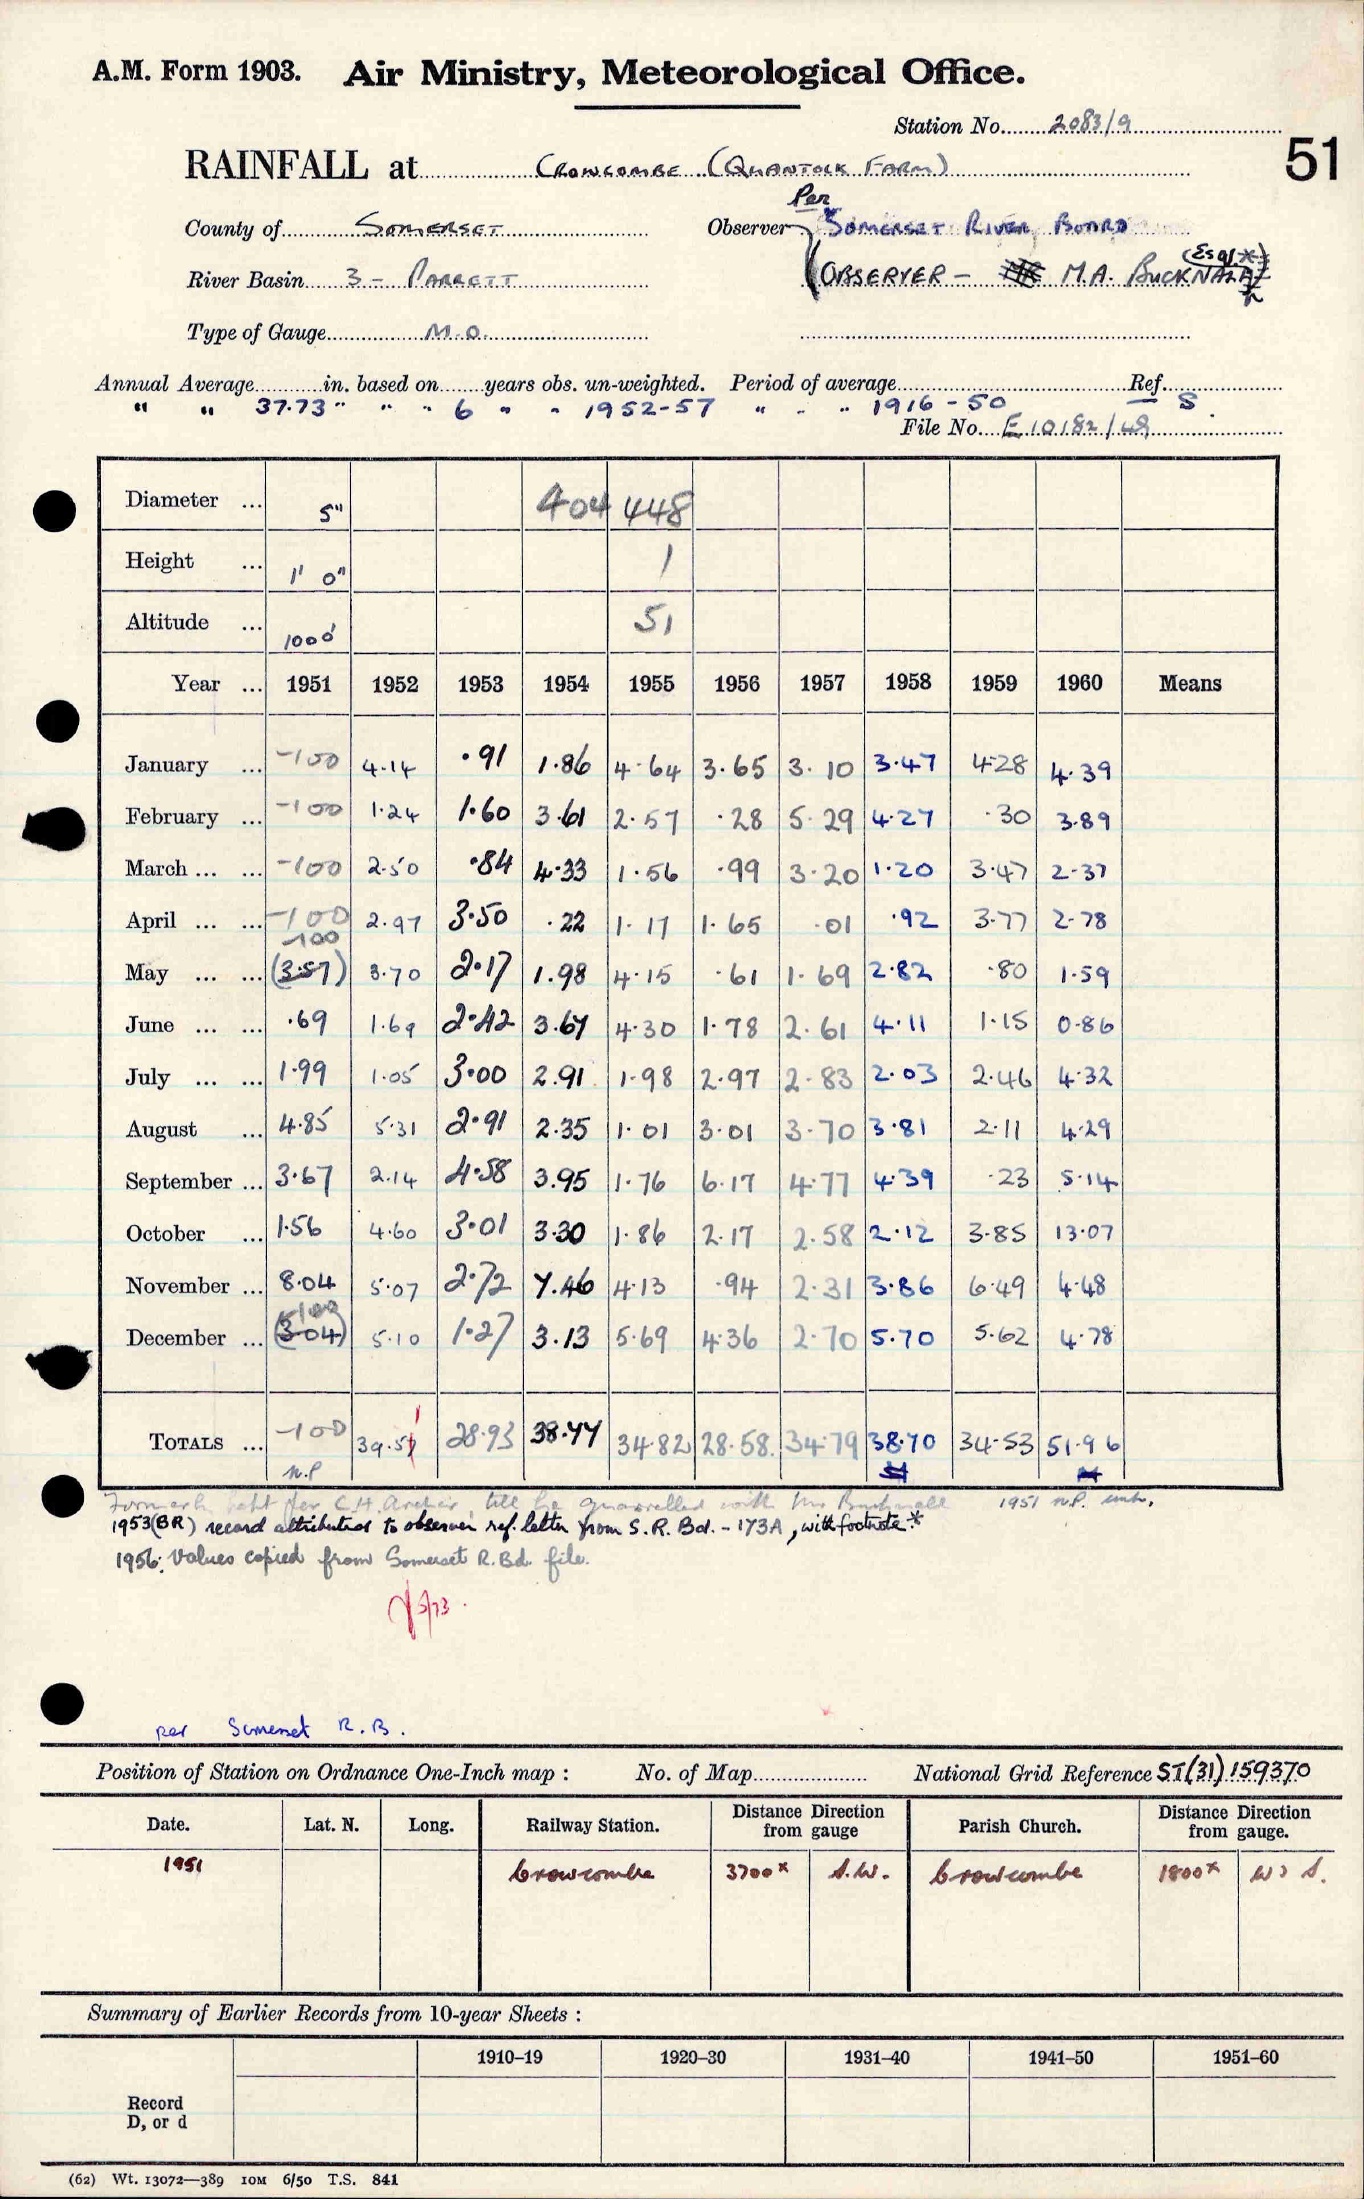 A.M. Form 1903. Air Ministry, Meteorological Office.
Station No. 2083/9
51
RAINFALL at CROWCOMBE (QUANTOCK FARM)
Per
County of SOMERSET Observer SOMERSET RIVER BOARD
(Esq.*)
River Basin 3 - PARRETT OBSERVER - M.A. BUCKNALL
Type of Gauge M.O.
Annual Average in. based on years obs. un-weighted. Period of average Ref.
" " 37.73 " " " 6 " " 1952-57 " " " 1916-50 S.
File No. E 10182/48
Diameter ... 5" 404 448
Height ... 1' 0" 1
Altitude ... 1000' 51
Year ... 1951 1952 1953 1954 1955 1956 1957 1958 1959 1960 Means
January ... -100 4.14 .91 1.86 4.64 3.65 3.10 3.47 4.28 4.39
February ... -100 1.24 1.60 3.61 2.57 .28 5.29 4.27 .30 3.89
March ... ... -100 2.50 .84 4.33 1.56 .99 3.20 1.20 3.47 2.37
April ... ... -100 2.97 3.50 .22 1.17 1.65 .01 .92 3.77 2.78
-100
May ... ... (3.57) 3.70 2.17 1.98 4.15 .61 1.69 2.82 .80 1.59
June ... ... .69 1.69 2.42 3.67 4.30 1.78 2.61 4.11 1.15 0.86
July ... ... 1.99 1.05 3.00 2.91 1.98 2.97 2.83 2.03 2.46 4.32
August ... 4.85 5.31 2.91 2.35 1.01 3.01 3.70 3.81 2.11 4.29
September ... 3.67 2.14 4.58 3.95 1.76 6.17 4.77 4.39 .23 5.14
October ... 1.56 4.60 3.01 3.30 1.86 2.17 2.58 2.12 3.85 13.07
November ... 8.04 5.07 2.72 7.46 4.13 .94 2.31 3.86 6.49 4.48
-100
December ... (3.04) 5.10 1.27 3.13 5.69 4.36 2.70 5.70 5.62 4.78
TOTALS ... -100 39.51 28.93 38.77 34.82 28.58 34.79 38.70 34.53 51.96
n.p
Formerly kept per C.H. Archer, till he quarrelled with Mr Bucknall 1951 n.p.
1953 (BR) record attributed to observer ref. letter from S.R. Bd. - 173A, with footnote *
1956: Values copied from Somerset R. Bd. file.
5/73.
per Somerset R.B.
Position of Station on Ordnance One-Inch map : No. of Map National Grid Reference ST(31)159370
Date. Lat. N. Long. Railway Station. Distance Direction from gauge Parish Church. Distance Direction from gauge.
1951 Crowcombe 3700x S.W. Crowcombe 1800x W S.
Summary of Earlier Records from 10-year Sheets :
1910–19 1920–30 1931–40 1941–50 1951–60
Record
D, or d
(62) Wt. 13072—389 10M 6/50 T.S. 841